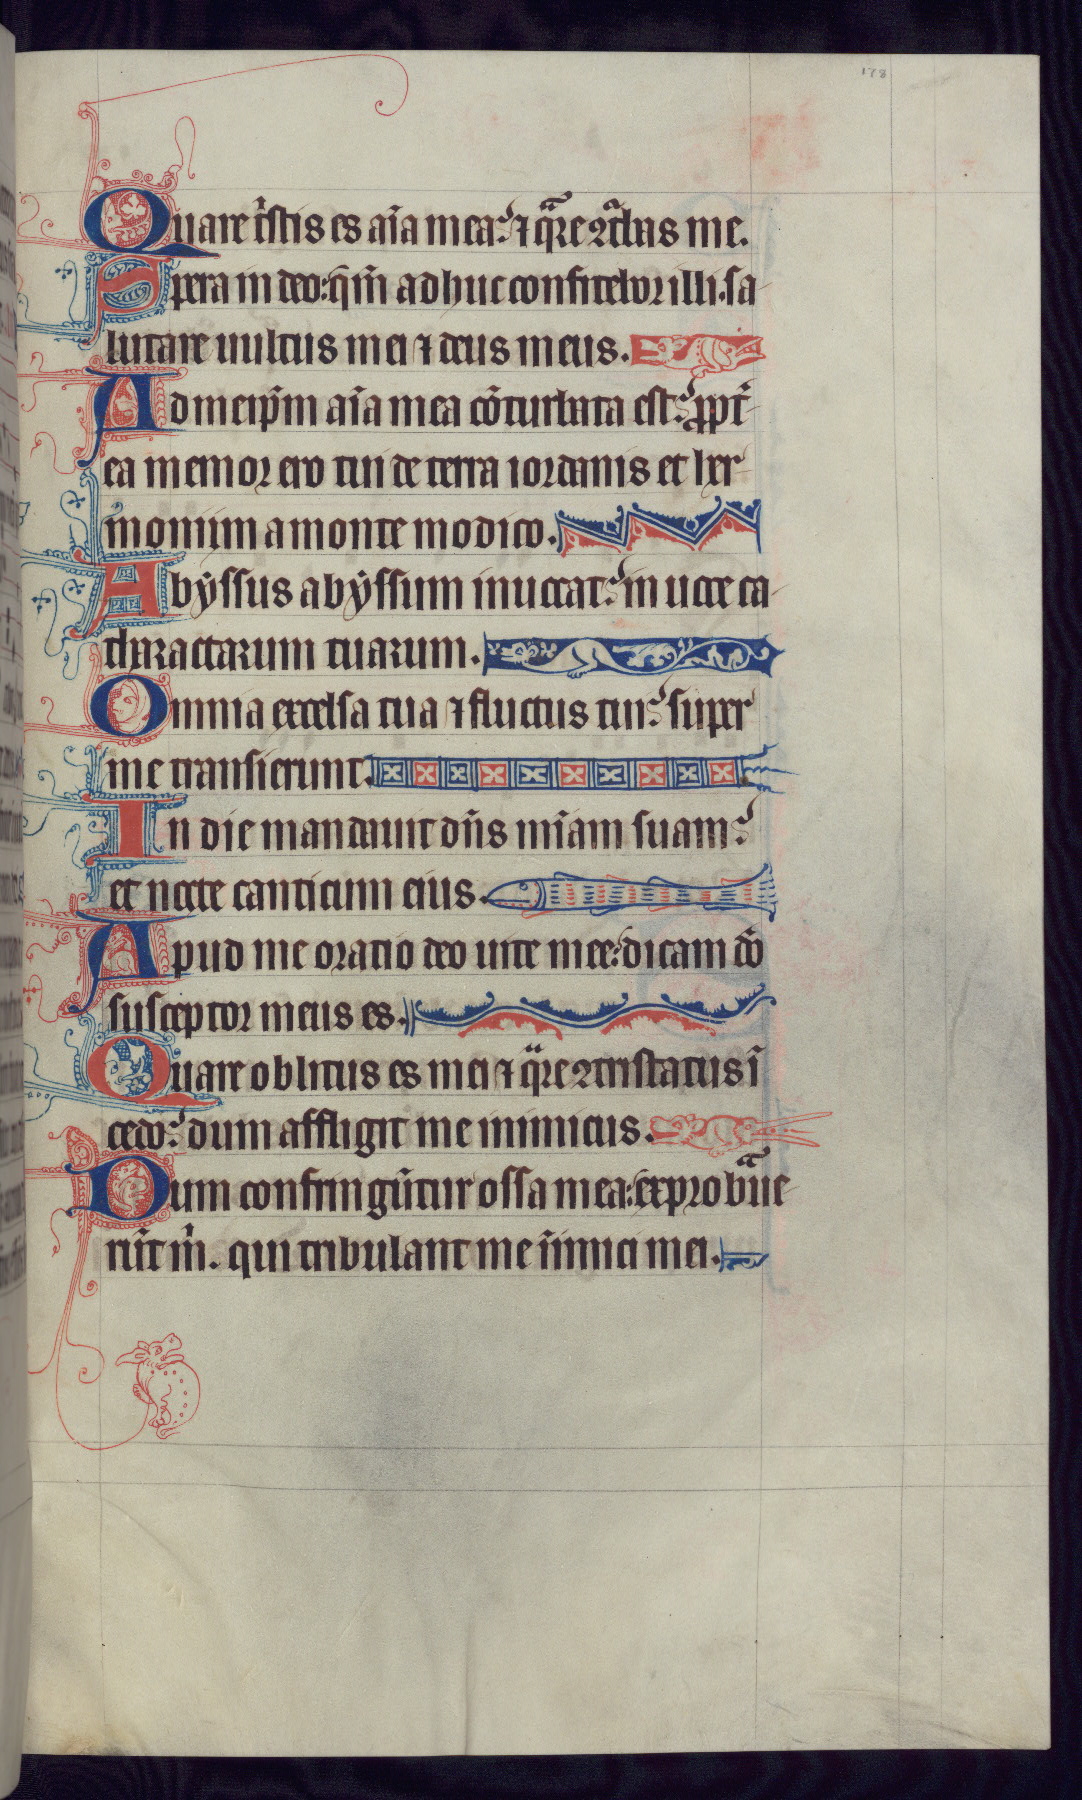 178
Quare t̾stis es aīa mea? ⁊ q̄re ꝯt̾bas me.
Spera in deo: qm̄ adhuc confitebor illi. sa-
lutare uultus mei ⁊ deus meus.
Ad meip̄m aīa mea cōturbata est? ꝓpt̾-
ea memor ero tui de terra iordanis et her-
moniim a monte modico.
Abẏssus abẏssum inuocat? in uoce ca-
tharactarum tuarum.
Omnia excelsa tua ⁊ fluctus tui? super
me transierunt.
In die mandauit dn̄s mīam suam?
et nocte canticum eius.
Apud me oratio deo uite mee? dicam dō
susceptor meus es.
Quare oblitus es mei ⁊ q̄re ꝯtristatus ī
cedo? dum affligit me inimicus.
Dum confringūtur ossa mea: exprobaūe-
rūt m̄. qui tribulant me īimici mei.